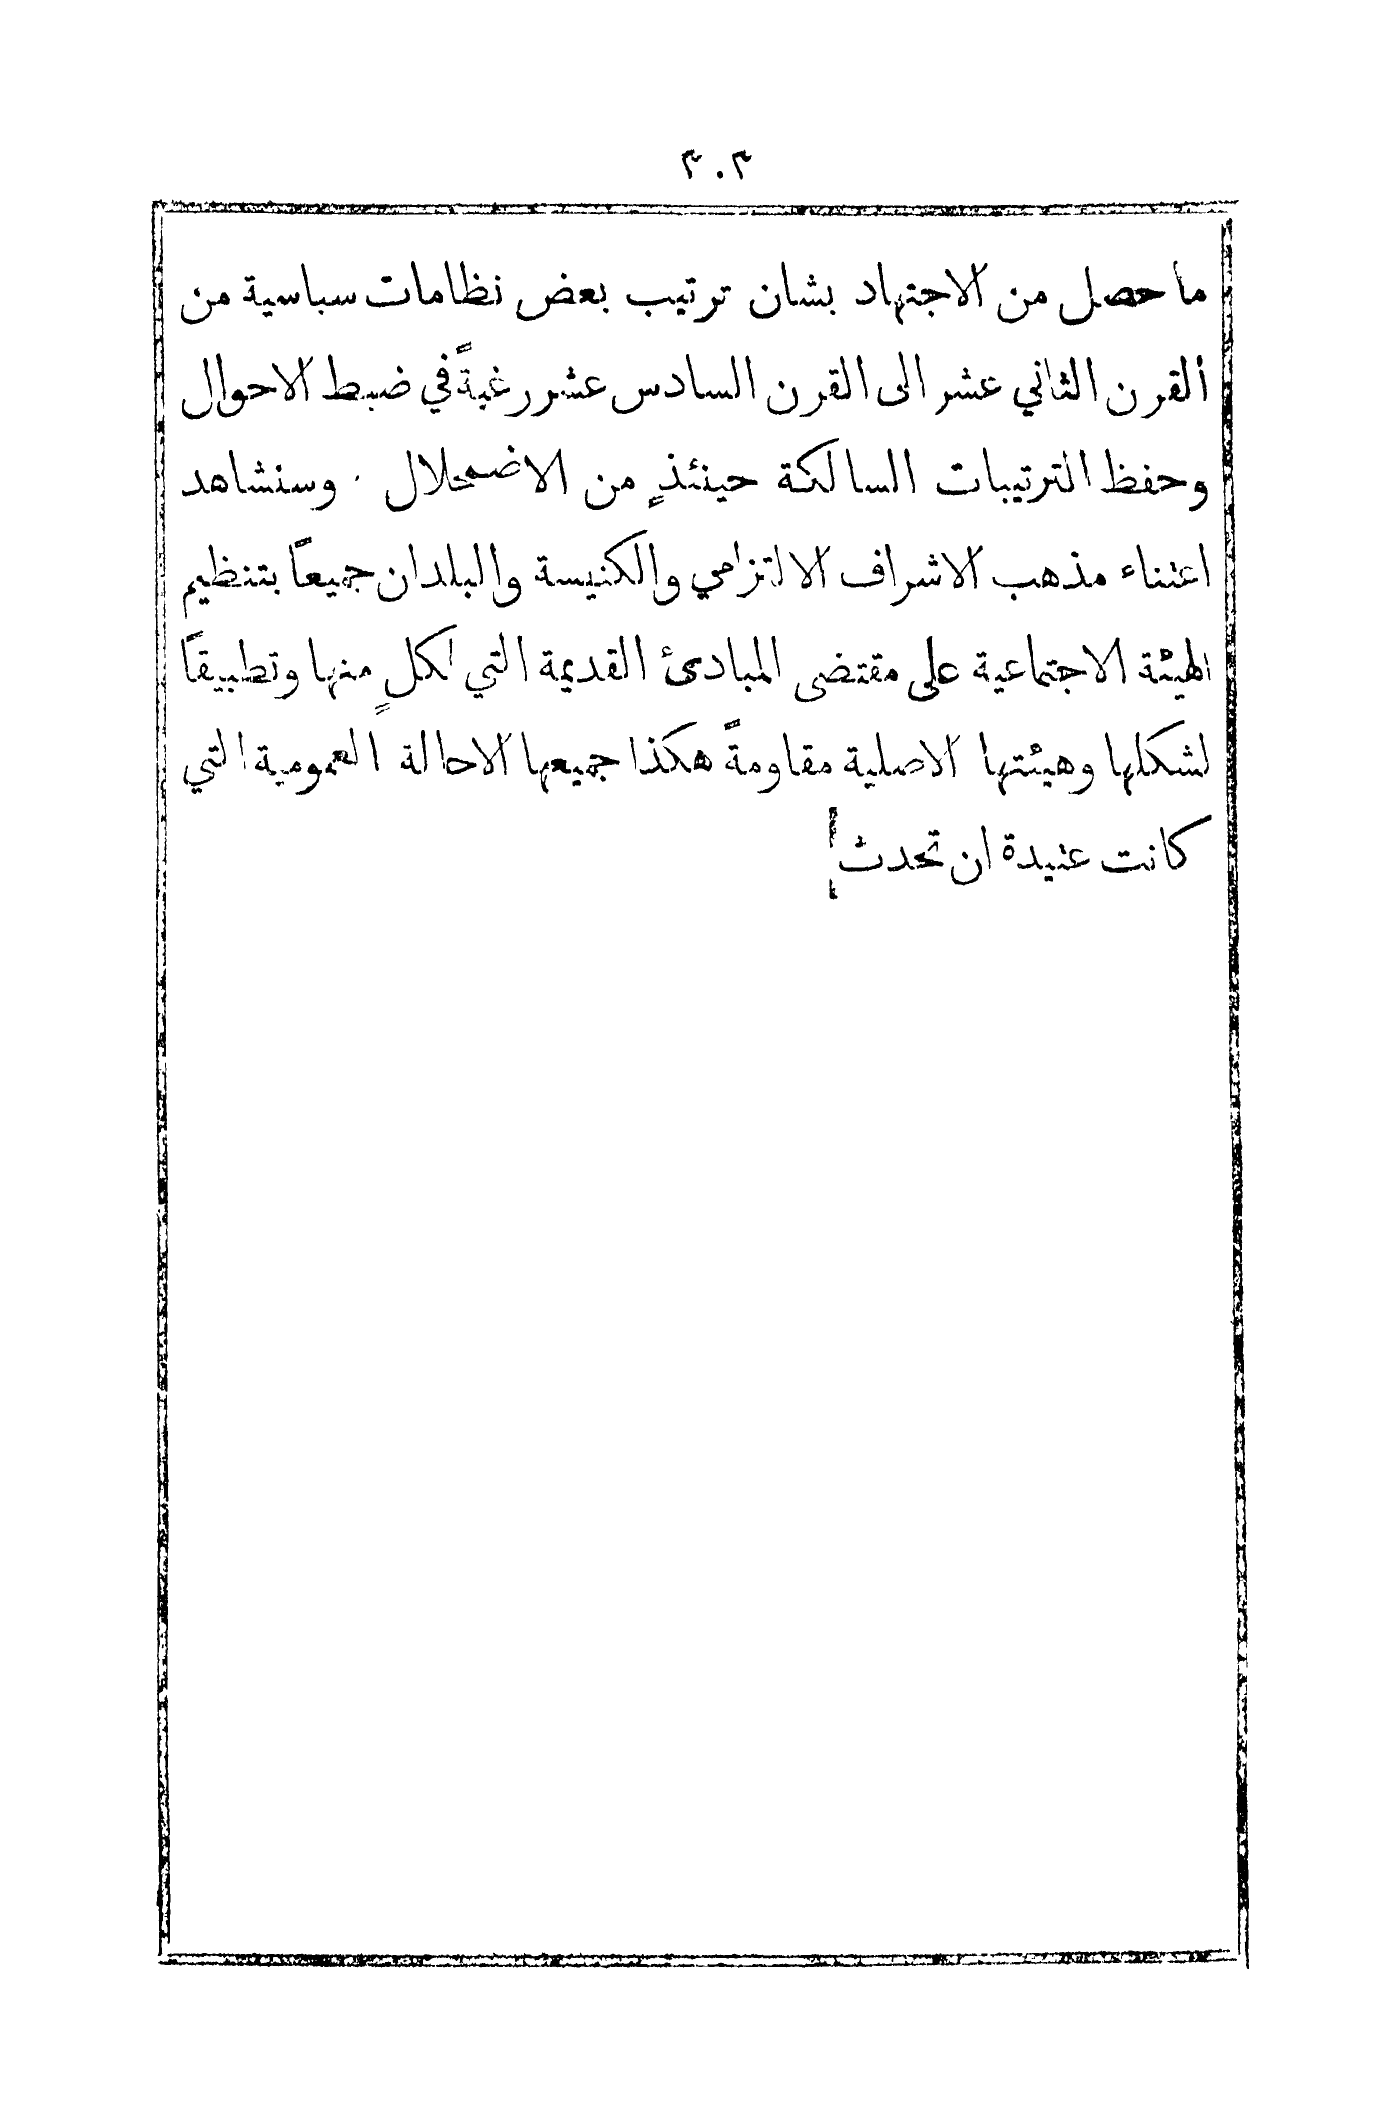 ٣٠٣
ما حصل من الاجتهاد بشان ترتيب بعض نظامات سياسية من
القرن الثاني عشر الى القرن السادس عشر رغبةً في ضبط الاحوال
وحفظ الترتيبات السالكة حينئذٍ من الاضمحلال . وسنشاهد
اعتناء مذهب الاشراف الالتزامي والكنيسة والبلدان جميعاً بتنظيم
الهيئة الاجتماعية على مقتضى المبادئ القديمة التي لكلٍ منها وتطبيقاً
لشكلها وهيئتها الاصلية مقاومةً هكذا جميعها الاحالة العمومية التي
كانت عتيدة ان تحدث